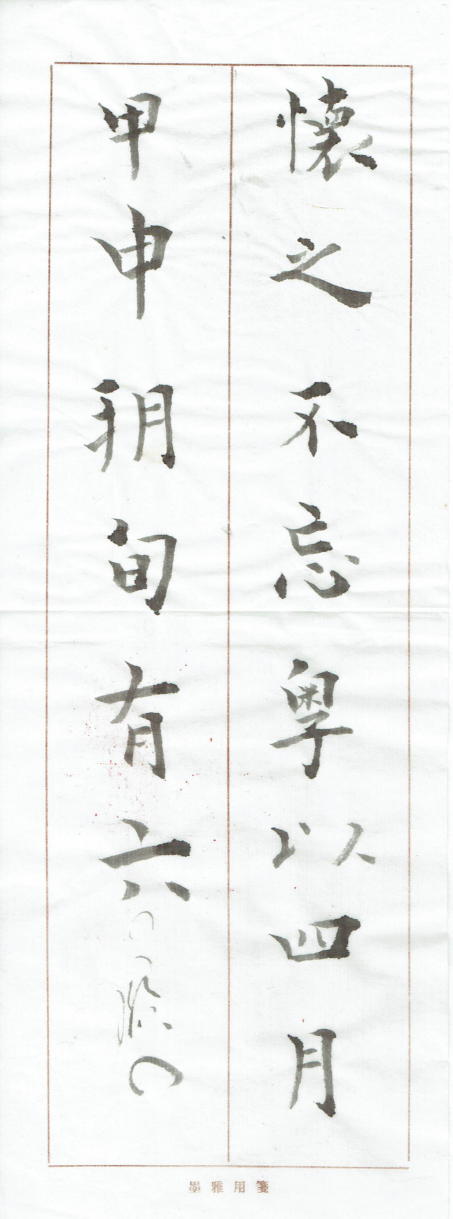 懷之不忘粤以四月
甲申朔旬有六
墨雅用箋